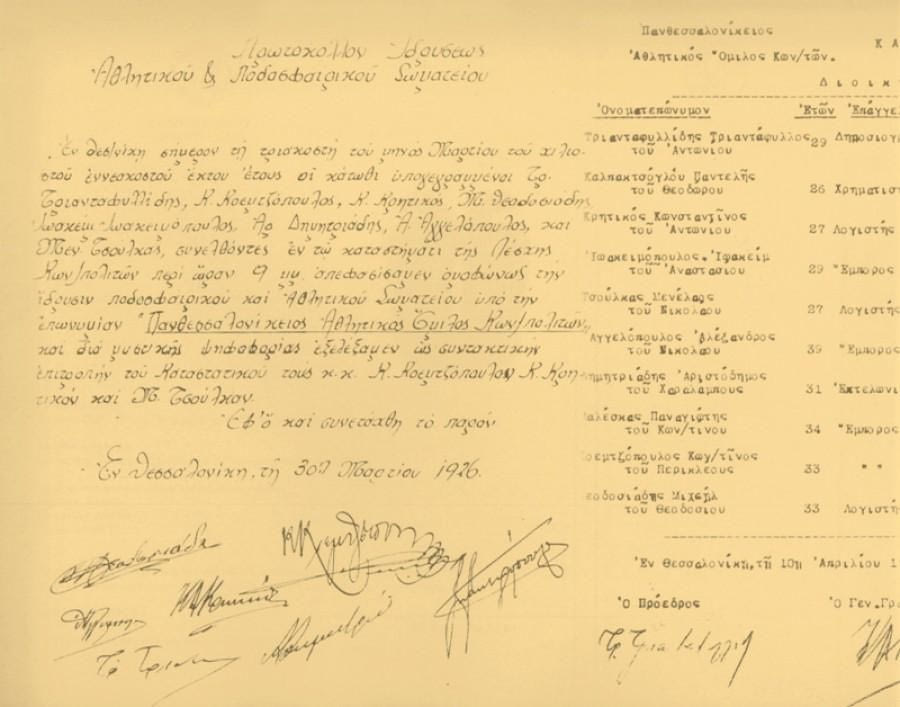 Πρωτόκολλον Ιδρύσεως
Ἀθλητικοῦ & Ποδοσφαιρικοῦ Σωματείου
Ἐν Θεσ/νίκῃ σήμερον τῇ τριακοστῇ τοῦ μηνὸς Μαρτίου τοῦ χιλιο-
στοῦ ἐννεακοστοῦ ἕκτου ἔτους οἱ κάτωθι ὑπογεγραμμένοι Τρ.
Τριανταφυλλίδης, Κ. Κρεμτζόπουλος, Κ. Κρητικός, Μ. Θεοδοσιάδης,
Ἰωακεὶμ Ἰωακειμόπουλος, Ἀρ. Δημητριάδης, Ἀ. Ἀγγελόπουλος, καὶ
Μεν. Τσούλκας, συνελθόντες ἐν τῷ καταστήματι τῆς Λέσχης
Κων/πολιτῶν περὶ ὥραν 9 μμ. ἀπεφασίσαμεν ὁμοφώνως τὴν
ἵδρυσιν ποδοσφαιρικοῦ καὶ Ἀθλητικοῦ Σωματείου ὑπὸ τὴν
ἐπωνυμίαν "Πανθεσσαλονίκειος Ἀθλητικὸς Ὅμιλος Κων/πολιτῶν"
καὶ διὰ μυστικῆς ψηφοφορίας ἐξελέξαμεν ὡς συντακτικὴν
ἐπιτροπὴν τοῦ Καταστατικοῦ τους κ.κ. Κ. Κρεμτζόπουλον, Κ. Κρη-
τικὸν καὶ Μ. Τσούλκαν.
Ἐφ' ᾧ καὶ συνετάχθη τὸ παρόν
Ἐν Θεσσαλονίκῃ, τῇ 30ῃ Μαρτίου 1926.
Πανθεσσαλονίκειος
Ἀθλητικός Ὅμιλος Κων/τῶν.
Κ Α
Δ ι ο ι κ
Ὀνοματεπώνυμον Ἐτῶν Ἐπάγγελ
Τριανταφυλλίδης Τριαντάφυλλος 29 Δημοσιογ
τοῦ Ἀντωνίου
Καλπακτσόγλου Παντελῆς
τοῦ Θεοδώρου 26 Χρηματισ
Κρητικός Κωνσταντῖνος
τοῦ Ἀντωνίου 27 Λογιστής
Ἰωακειμόπουλος Ἰωακείμ
τοῦ Ἀναστασίου 29 Ἔμπορος
Τσούλκας Μενέλαος
τοῦ Νικολάου 27 Λογιστής
Ἀγγελόπουλος Ἀλέξανδρος
τοῦ Νικολάου 39 Ἔμπορος
Δημητριάδης Ἀριστόδημος
τοῦ Χαραλάμπους 31 Ἐκτελωνι
αλέσκας Παναγιώτης
τοῦ Κων/τίνου 34 Ἔμπορος
ρεμτζόπουλος Κων/τῖνος
τοῦ Περικλέους 33 " "
εοδοσιάδης Μιχαήλ
τοῦ Θεοδοσίου 33 Λογιστή
Ἐν Θεσσαλονίκῃ, τῇ 10ῃ Ἀπριλίου 1
Ὁ Πρόεδρος Ὁ Γεν.Γρ